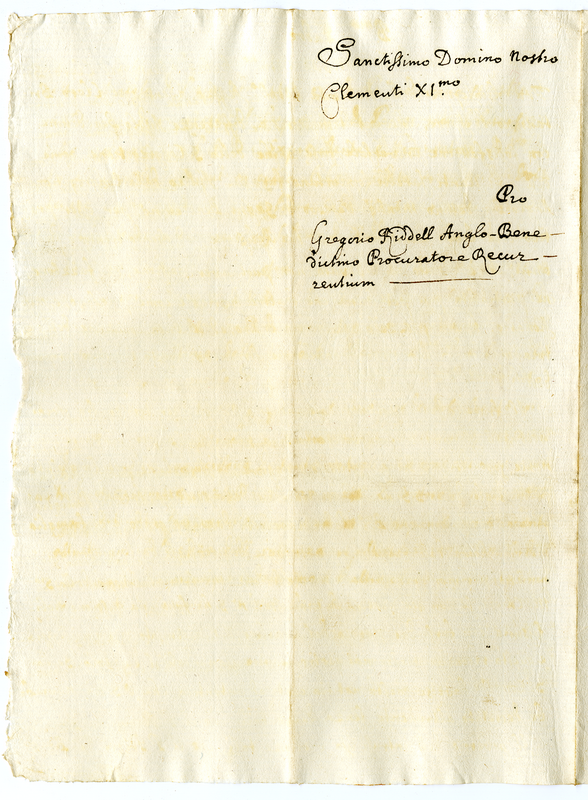 Sanctissimo Domino Nostro
Clementi XI.mo
Pro
Gregorio Riddell Anglo-Bene-
dictino Procuratore Recur-
rentium